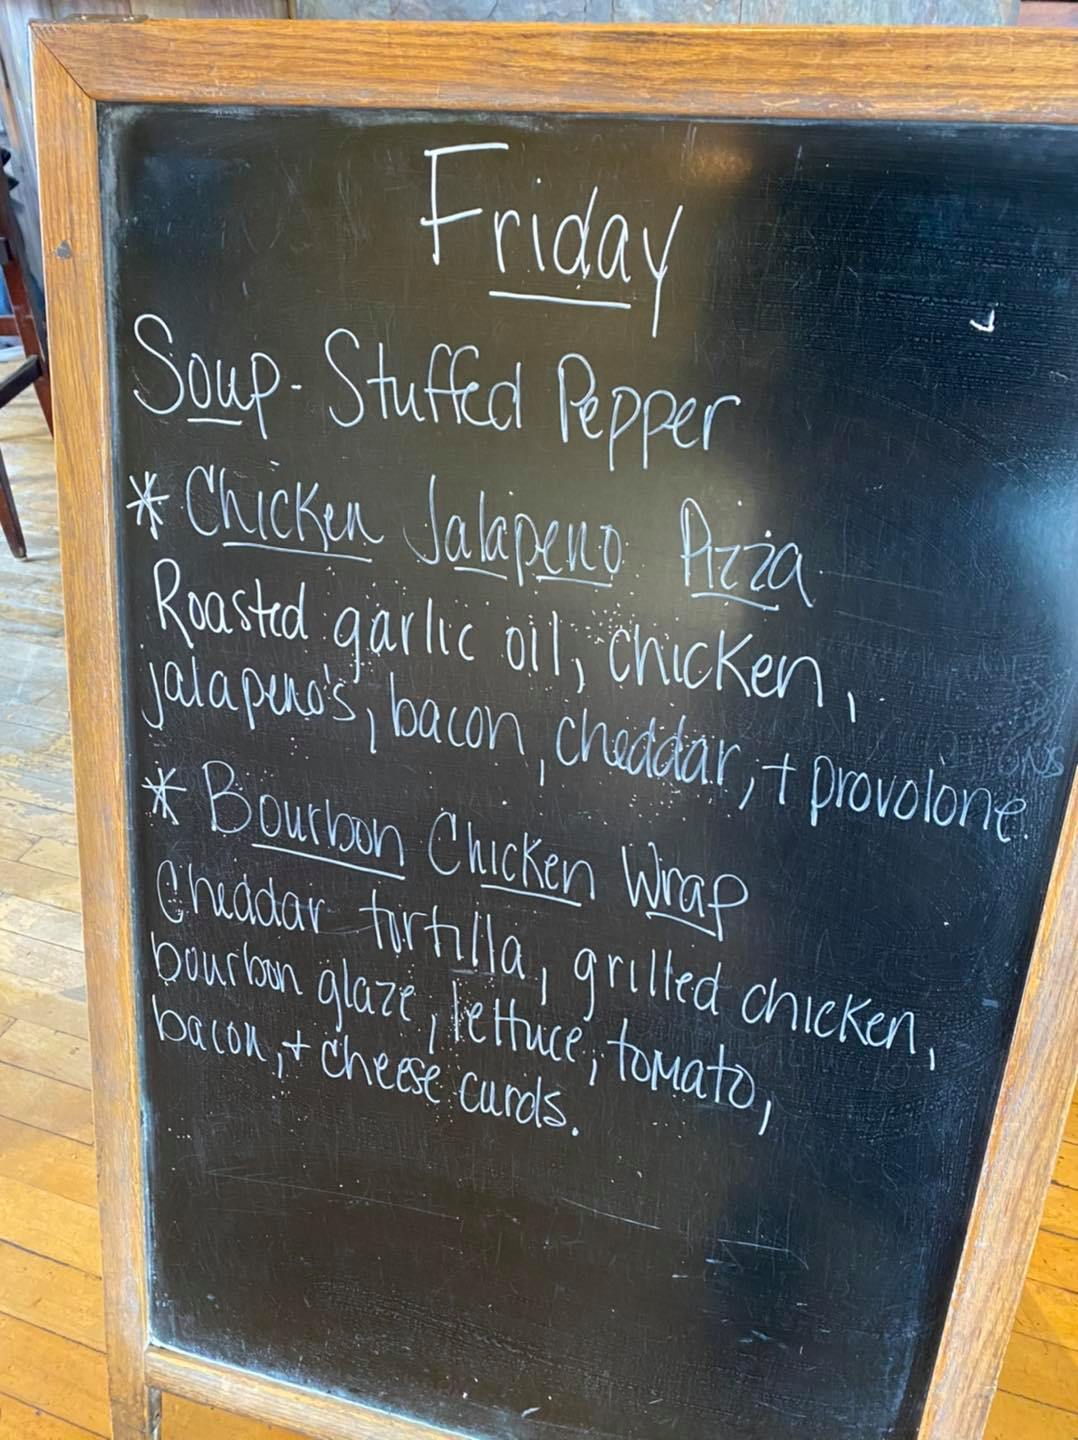 Friday
Soup - Stuffed Pepper
* Chicken Jalapeno Pizza
Roasted garlic oil, chicken,
jalapeno's, bacon, cheddar, + provolone.
* Bourbon Chicken Wrap
Cheddar tortilla, grilled chicken,
bourbon glaze, lettuce, tomato,
bacon, + cheese curds.